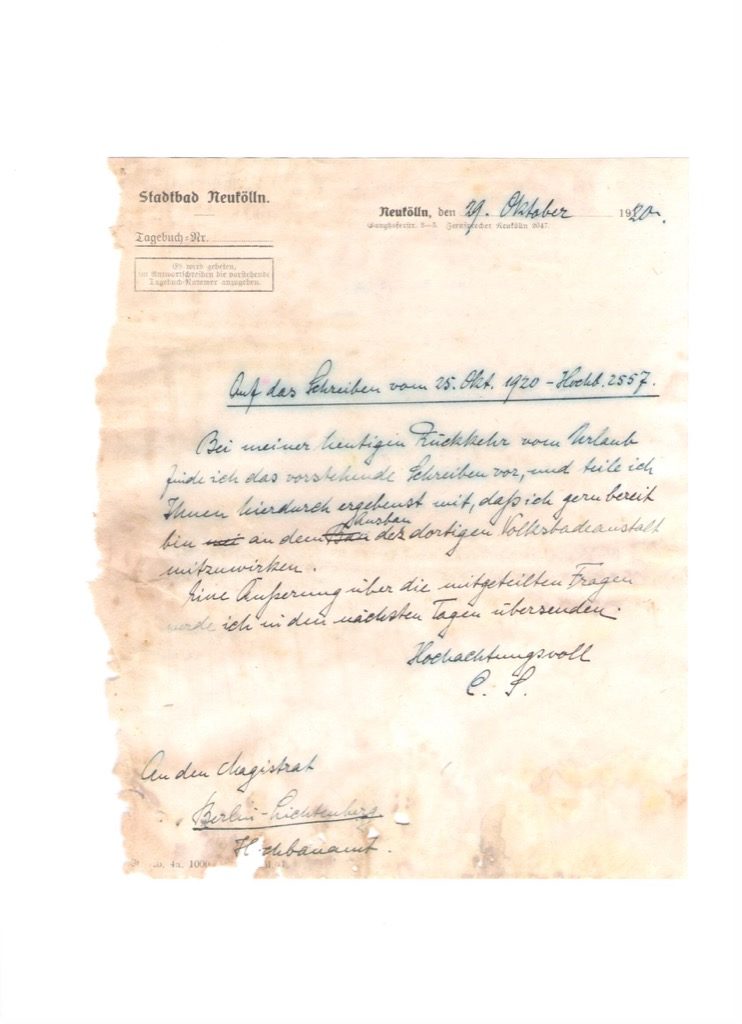 Stadtbad Neukölln.
Neukölln, den 29. Oktober 1920.
Ganghoferstr. 3–5. Fernsprecher Neukölln 2047.
Tagebuch-Nr.
Es wird gebeten,
im Antwortschreiben die vorstehende
Tagebuch-Nummer anzugeben.
Auf das Schreiben vom 25. Okt. 1920 – Hochb. 2557.
Bei meiner heutigen Rückkehr vom Urlaub
finde ich das vorstehende Schreiben vor, und teile ich
Ihnen hierdurch ergebenst mit, daß ich gern bereit
Ausbau
bin mei an dem Bau der dortigen Volksbadeanstalt
mitzuwirken.
Eine Äußerung über die mitgeteilten Fragen
werde ich in den nächsten Tagen übersenden.
Hochachtungsvoll
C. S.
An den Magistrat
Berlin-Lichtenberg
Hochbauamt.
4a. 1000